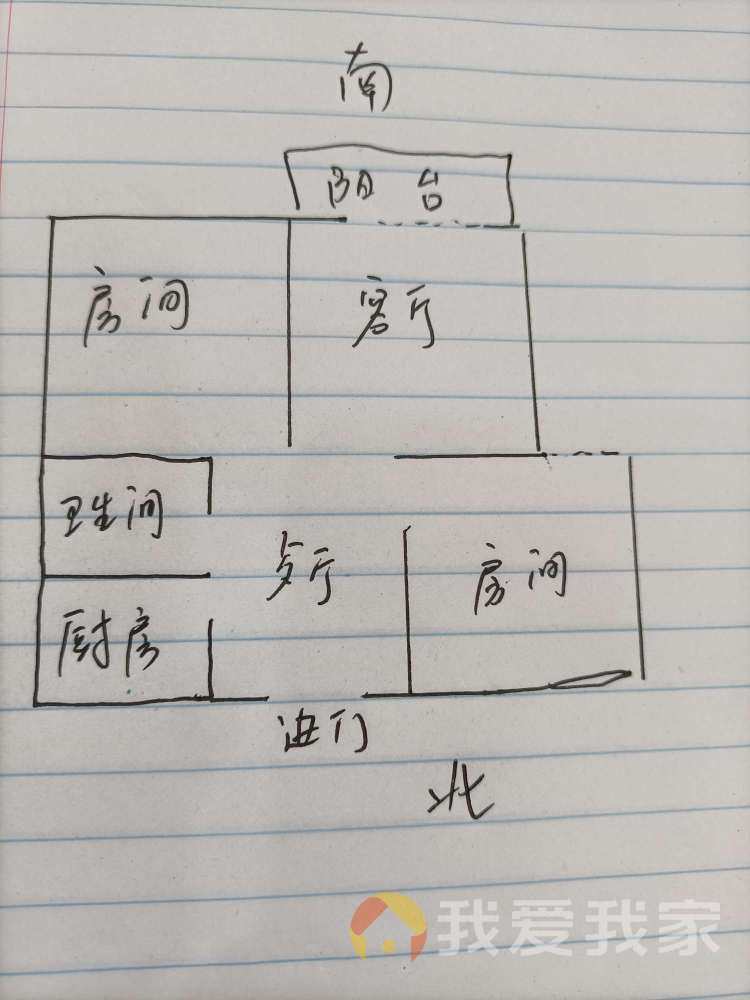 南
阳台
房间 客厅
卫生间
歺厅 房间
厨房
进门
北
我爱我家